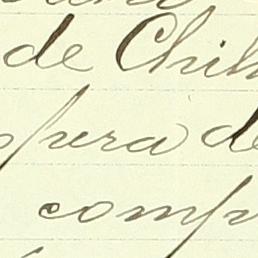 de Chil
pera de
comp